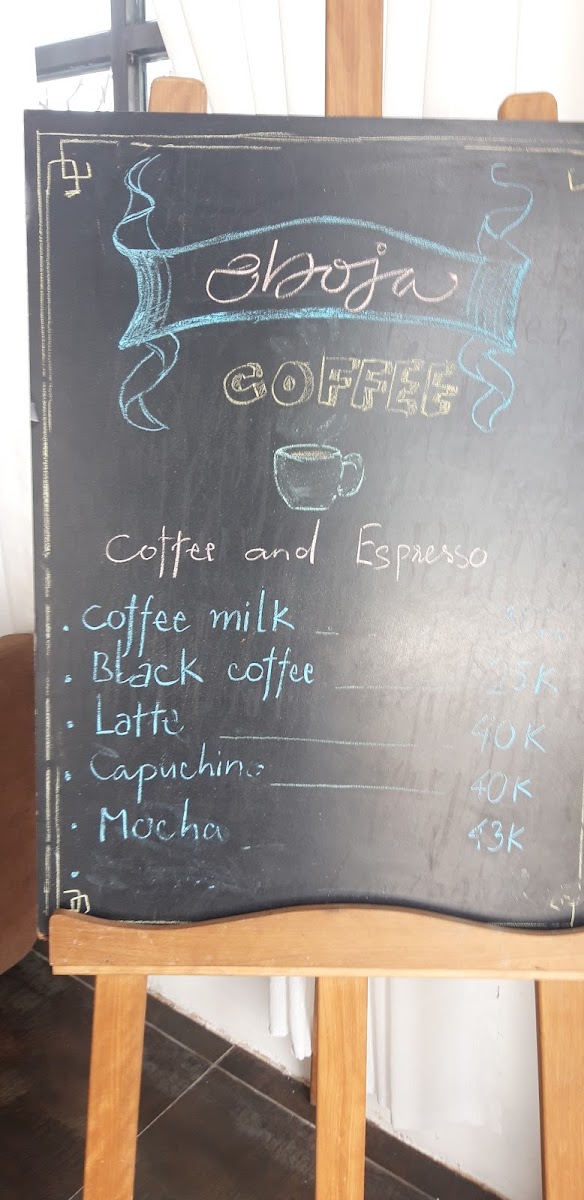 COFFEE
Coffee and Espresso
. Coffee milk
. Black coffee 25K
. Latte 40K
. Capuchino 40K
. Mocha 43K